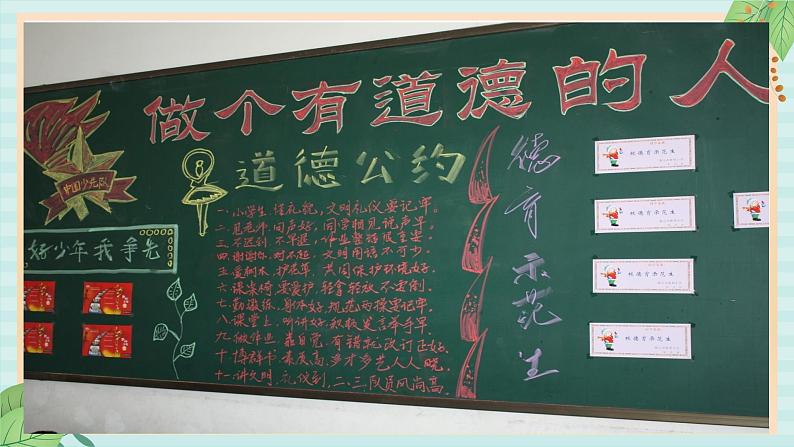 做个有道德的人
中国少先队
好少年我争先
道德公约
一、小学生，懂礼貌，文明礼仪要记牢。
二、见老师，问声好，同学相见说声早。
三、不迟到，不早退，作业整洁很重要。
四、谢谢你，对不起，文明用语不可少。
五、爱树木，护花草，共同保护环境好。
六、课桌椅，要爱护，轻拿轻放不差倒。
七、勤锻练，身体好，规范两操要记牢。
八、课堂上，听讲好，积极发言举手早。
九、做作业，靠自觉，有错就改订正好。
十、博群书，素质高，多才多艺人人晓。
十一、讲文明，礼仪到，二·三·队员风尚高。
德育示范生
校德育示范生
校德育示范生
校德育示范生
校德育示范生